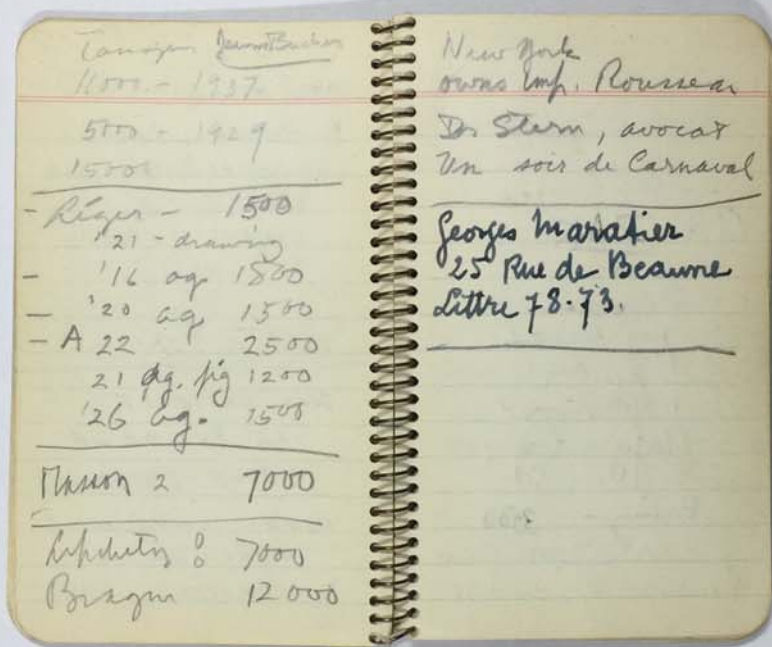 Jeanne Bucher
11000. - 1937
5000 - 1929
15000
- Léger - 1500
'21 - drawing
- '16 aq 1800
- '20 aq 1500
- A 22 2500
21 aq. fig 1200
'26 aq. 1500
Masson 2 7000
Lipchitz 8 7000
Braque 12 000
New York
owns imp. Rousseau
Dr Stern, avocat
Un soir de Carnaval
Georges Maratier
25 Rue de Beaune
Littre 78.73.